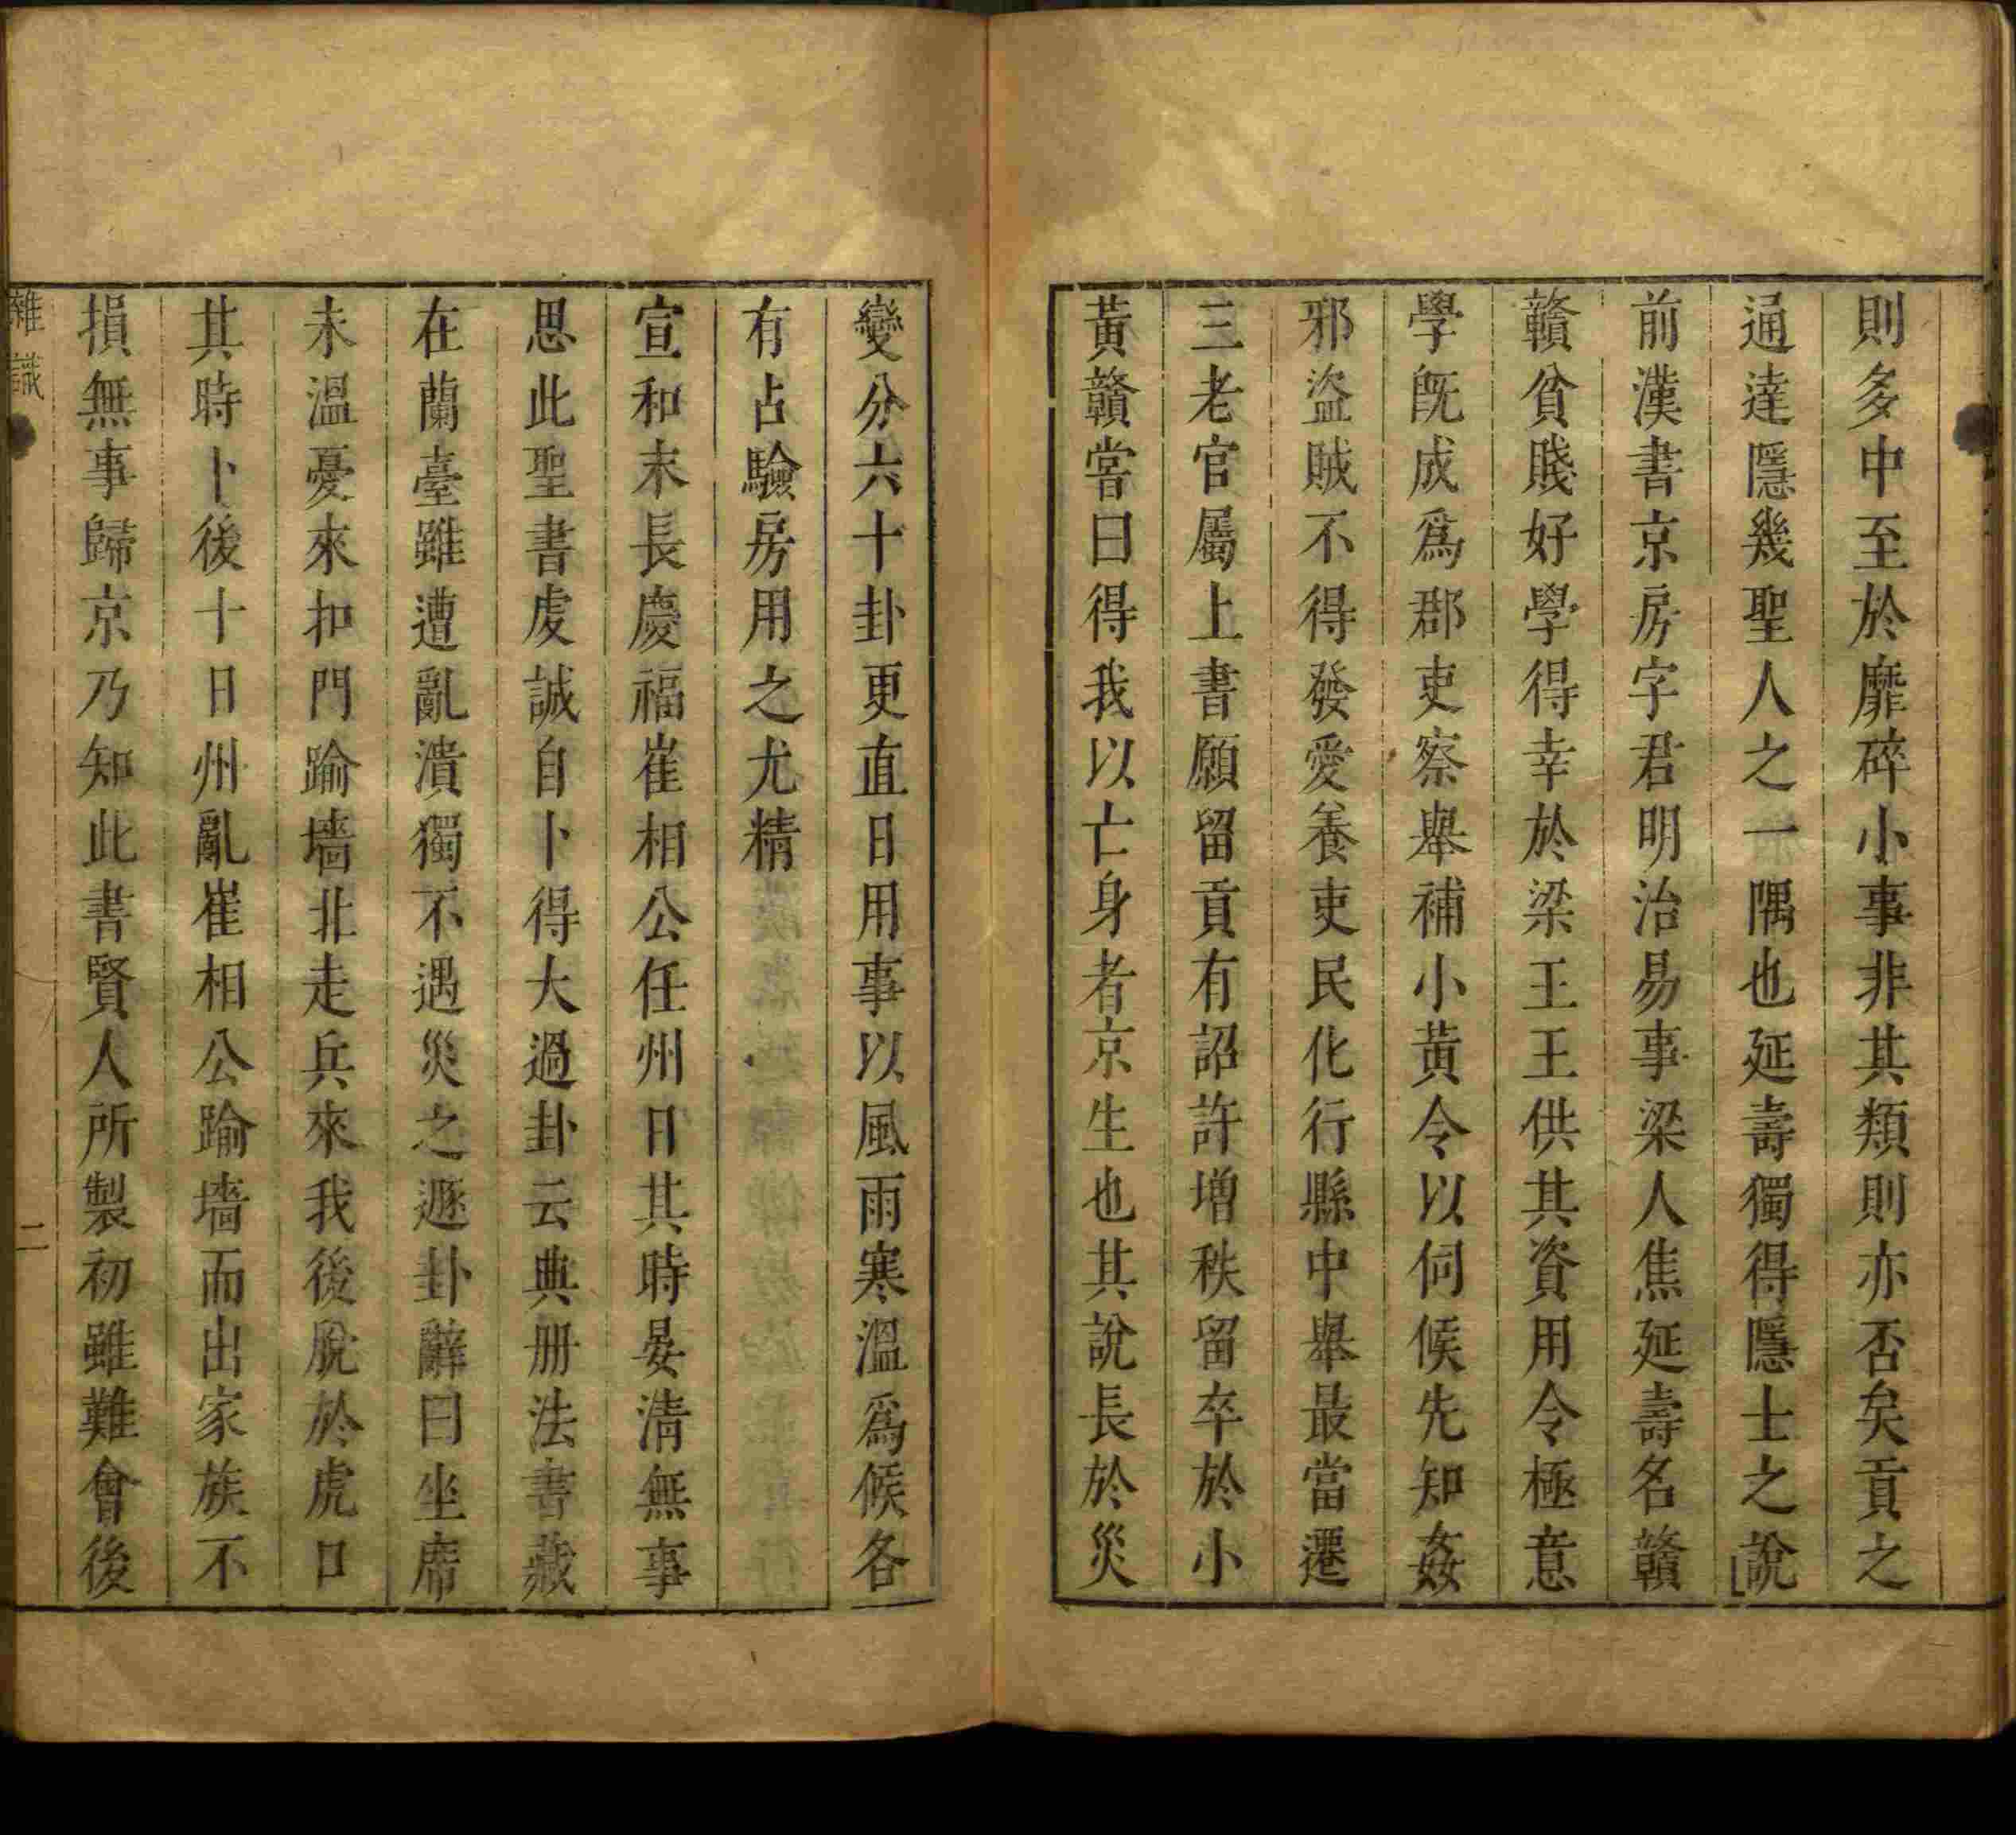 則多中至於靡碎小事非其類則亦否矣貢之
通達隱幾聖人之一隅也延壽獨得隱士之說
前漢書京房字君明治易事梁人焦延壽名贛
贛貧賤好學得幸於梁王王供其資用令極意
學旣成爲郡吏察舉補小黃令以伺候先知姦
邪盜賊不得發愛養吏民化行縣中舉最當遷
三老官屬上書願留貢有詔許增秩留卒於小
黃贛嘗曰得我以亡身者京生也其說長於災
變分六十卦更直日用事以風雨寒溫爲候各
有占驗房用之尤精
宣和末長慶福崔相公任州日其時晏淸無事
思此聖書虔誠自卜得大過卦云典册法書藏
在蘭臺雖遭亂潰獨不遇災之遯卦辭曰坐席
未溫憂來扣門踰墻北走兵來我後脫於虎口
其時卜後十日州亂崔相公踰墻而出家族不
損無事歸京乃知此書賢人所製初雖難會後
雜識
二